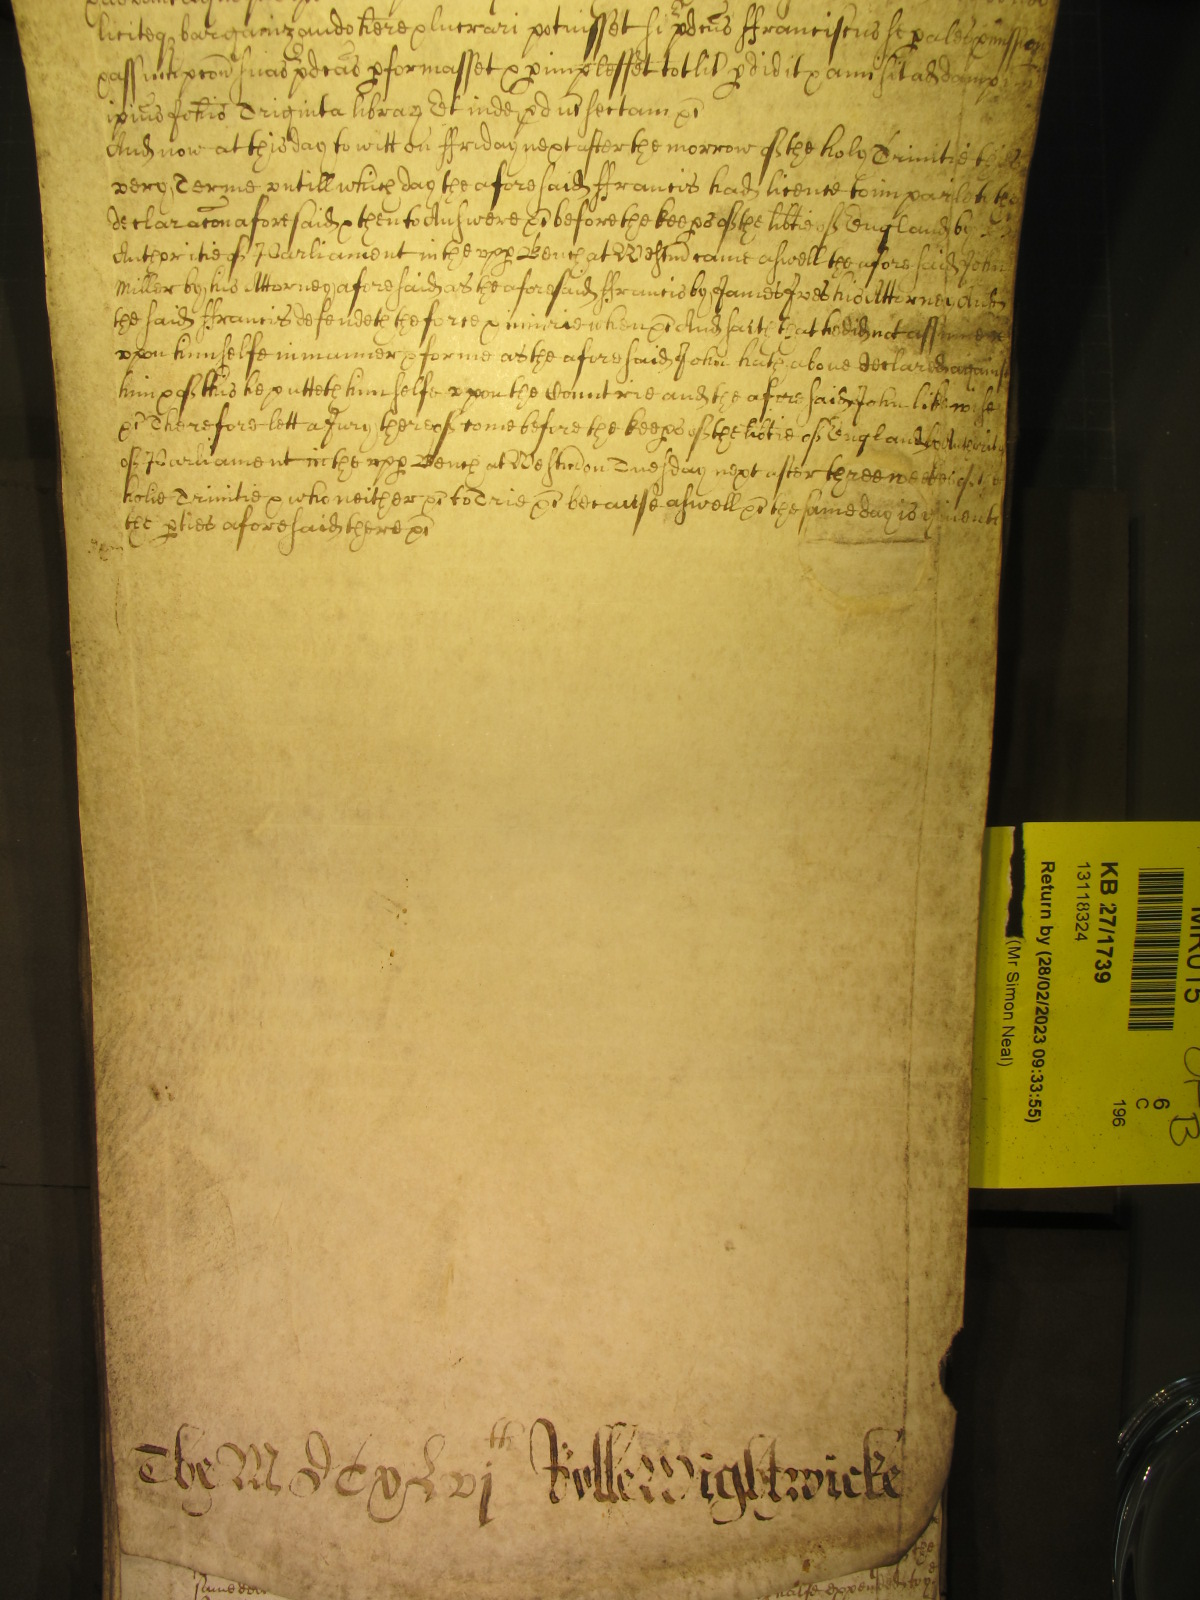 liciteqz barganizando hēre & lucrari potuisset si p̄dcūs ffranciscus se
& assumpcōn suas p̄dcas pformasset & pimplesset totlit pdidit & ami sit ad dampn
ipius Johis Triginta libraz Et inde pduc sectam &c
And now at this day to witt on ffriday next after the morrow of the holy Trinitie this
very Terme untill which day the aforesaid ffrancis had licence to imparle to the
declaracōn aforesaid & then to Answere &c before the keeps of the libtie of England by
Authoritie of Parliament in the upp Bench at Westm came aswell the aforesaid John
Miller by his Attorney aforesaid as the aforesaid ffrancis by James Ives his Attorney And
the said ffrancis defendeth the force & iniurie when &c And saith that he did not assume
upon himselfe in manner & forme as the aforesaid John hath above declared against
him & of this he putteth himselfe upon the Countrie and the aforesaid John likewise
&c Therefore lett a Jury thereof come before the keeps of the libtie of England by Authoritie
of Parliament in the upp Bench at Westm on Tuesday next after three weekes of the
holie Trinitie & who neither &c to Trie &c because aswell &c the same day is given to
the pties aforesaid there &c
The MDCxLvjth Rolle Wightwicke
KB 27/1739
13118324
Return by (28/02/2023 09:33:55)
(Mr Simon Neal)
6
C
196